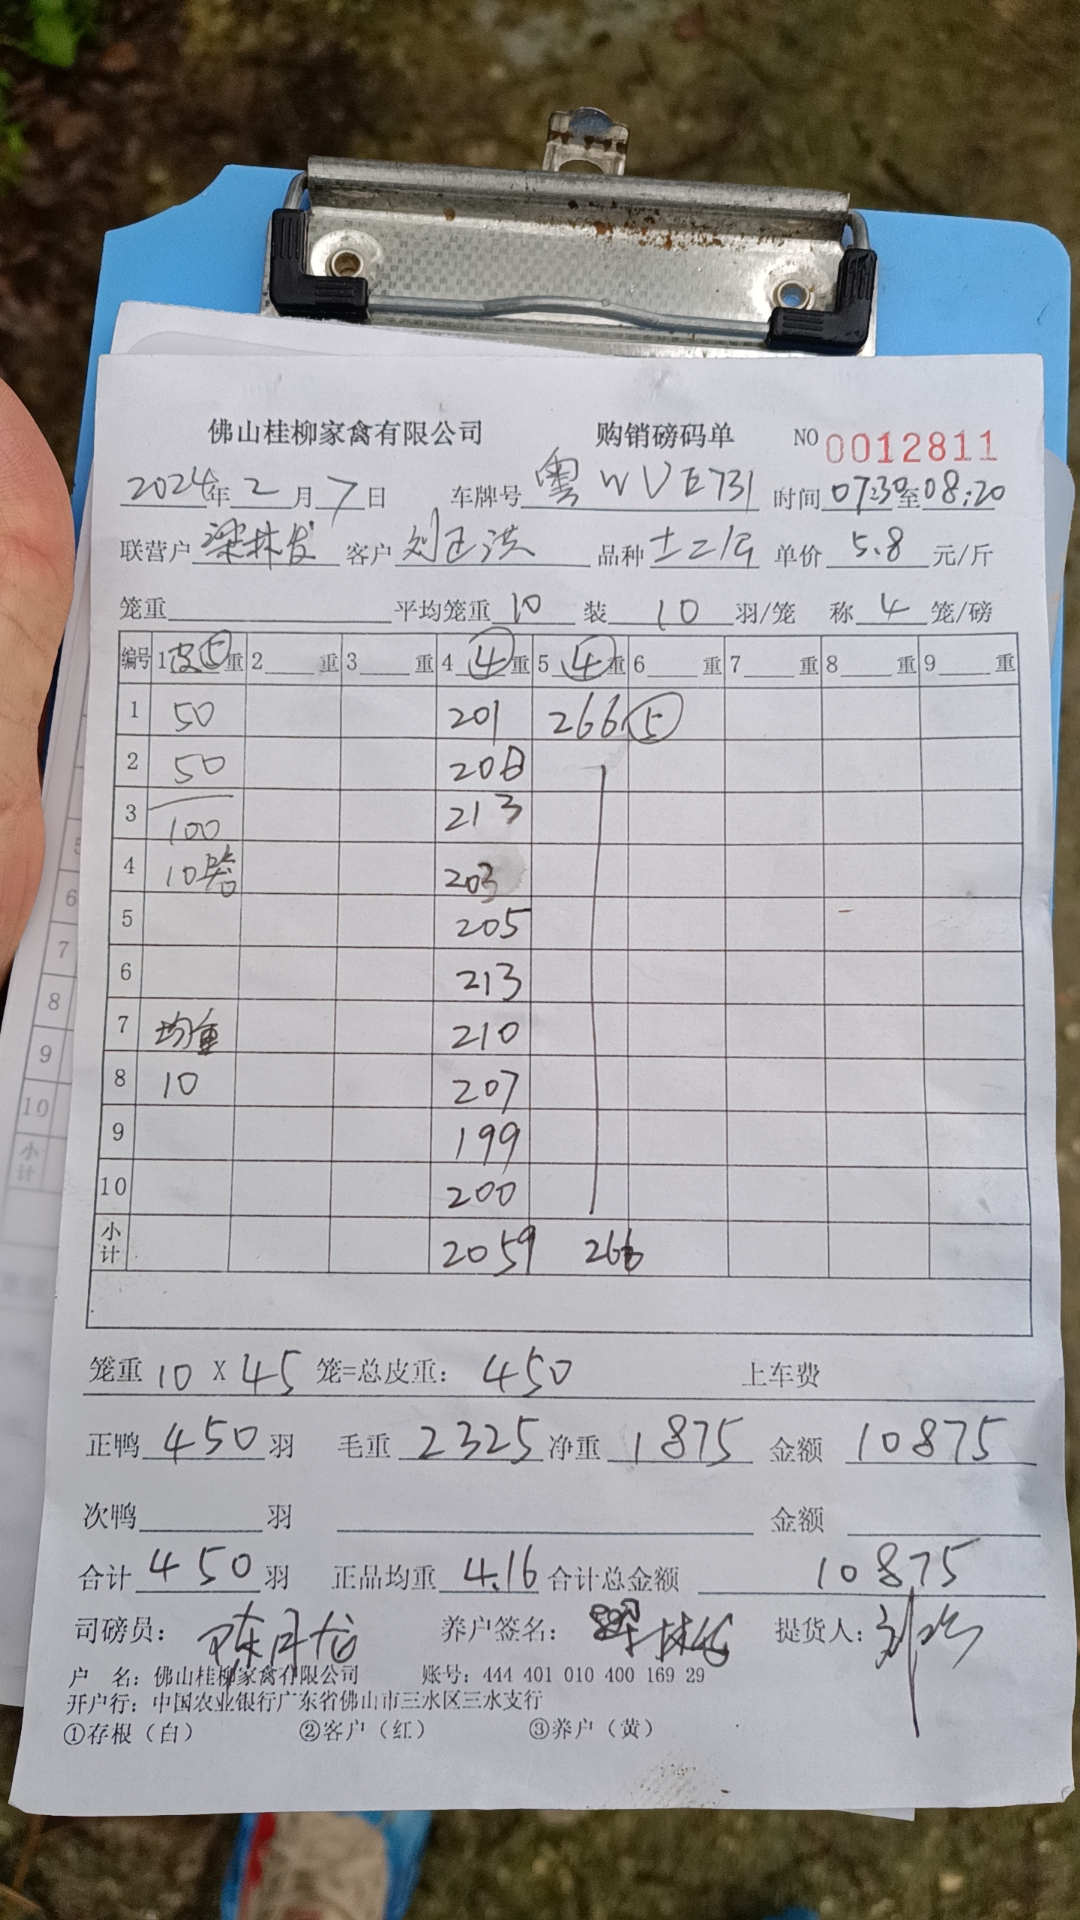 佛山桂柳家禽有限公司 购销磅码单 NO 0012811
2024年2月7日 车牌号 粤WVE731 时间07:30至08:20
联营户 梁林发 客户 刘正洪 品种 单价 5.8 元/斤
笼重 平均笼重 10 装 10 羽/笼 称 4 笼/磅
编号 1 皮⑤重 2 重 3 重 4 ④重 5 ④重 6 重 7 重 8 重 9 重
1 50 201 266 ⑤
2 50 208
3 100 213
4 10 203
5 205
6 213
7 均重 210
8 10 207
9 199
10 200
小计 2059 266
笼重 10 X 45 笼=总皮重: 450 上车费
正鸭 450 羽 毛重 2325 净重 1875 金额 10875
次鸭 羽 金额
合计 450 羽 正品均重 4.16 合计总金额 10875
司磅员: 养户签名: 提货人:
户 名: 佛山桂柳家禽有限公司 账号: 444 401 010 400 169 29
开户行: 中国农业银行广东省佛山市三水区三水支行
①存根（白） ②客户（红） ③养户（黄）
5
6
7
8
9
10
小计